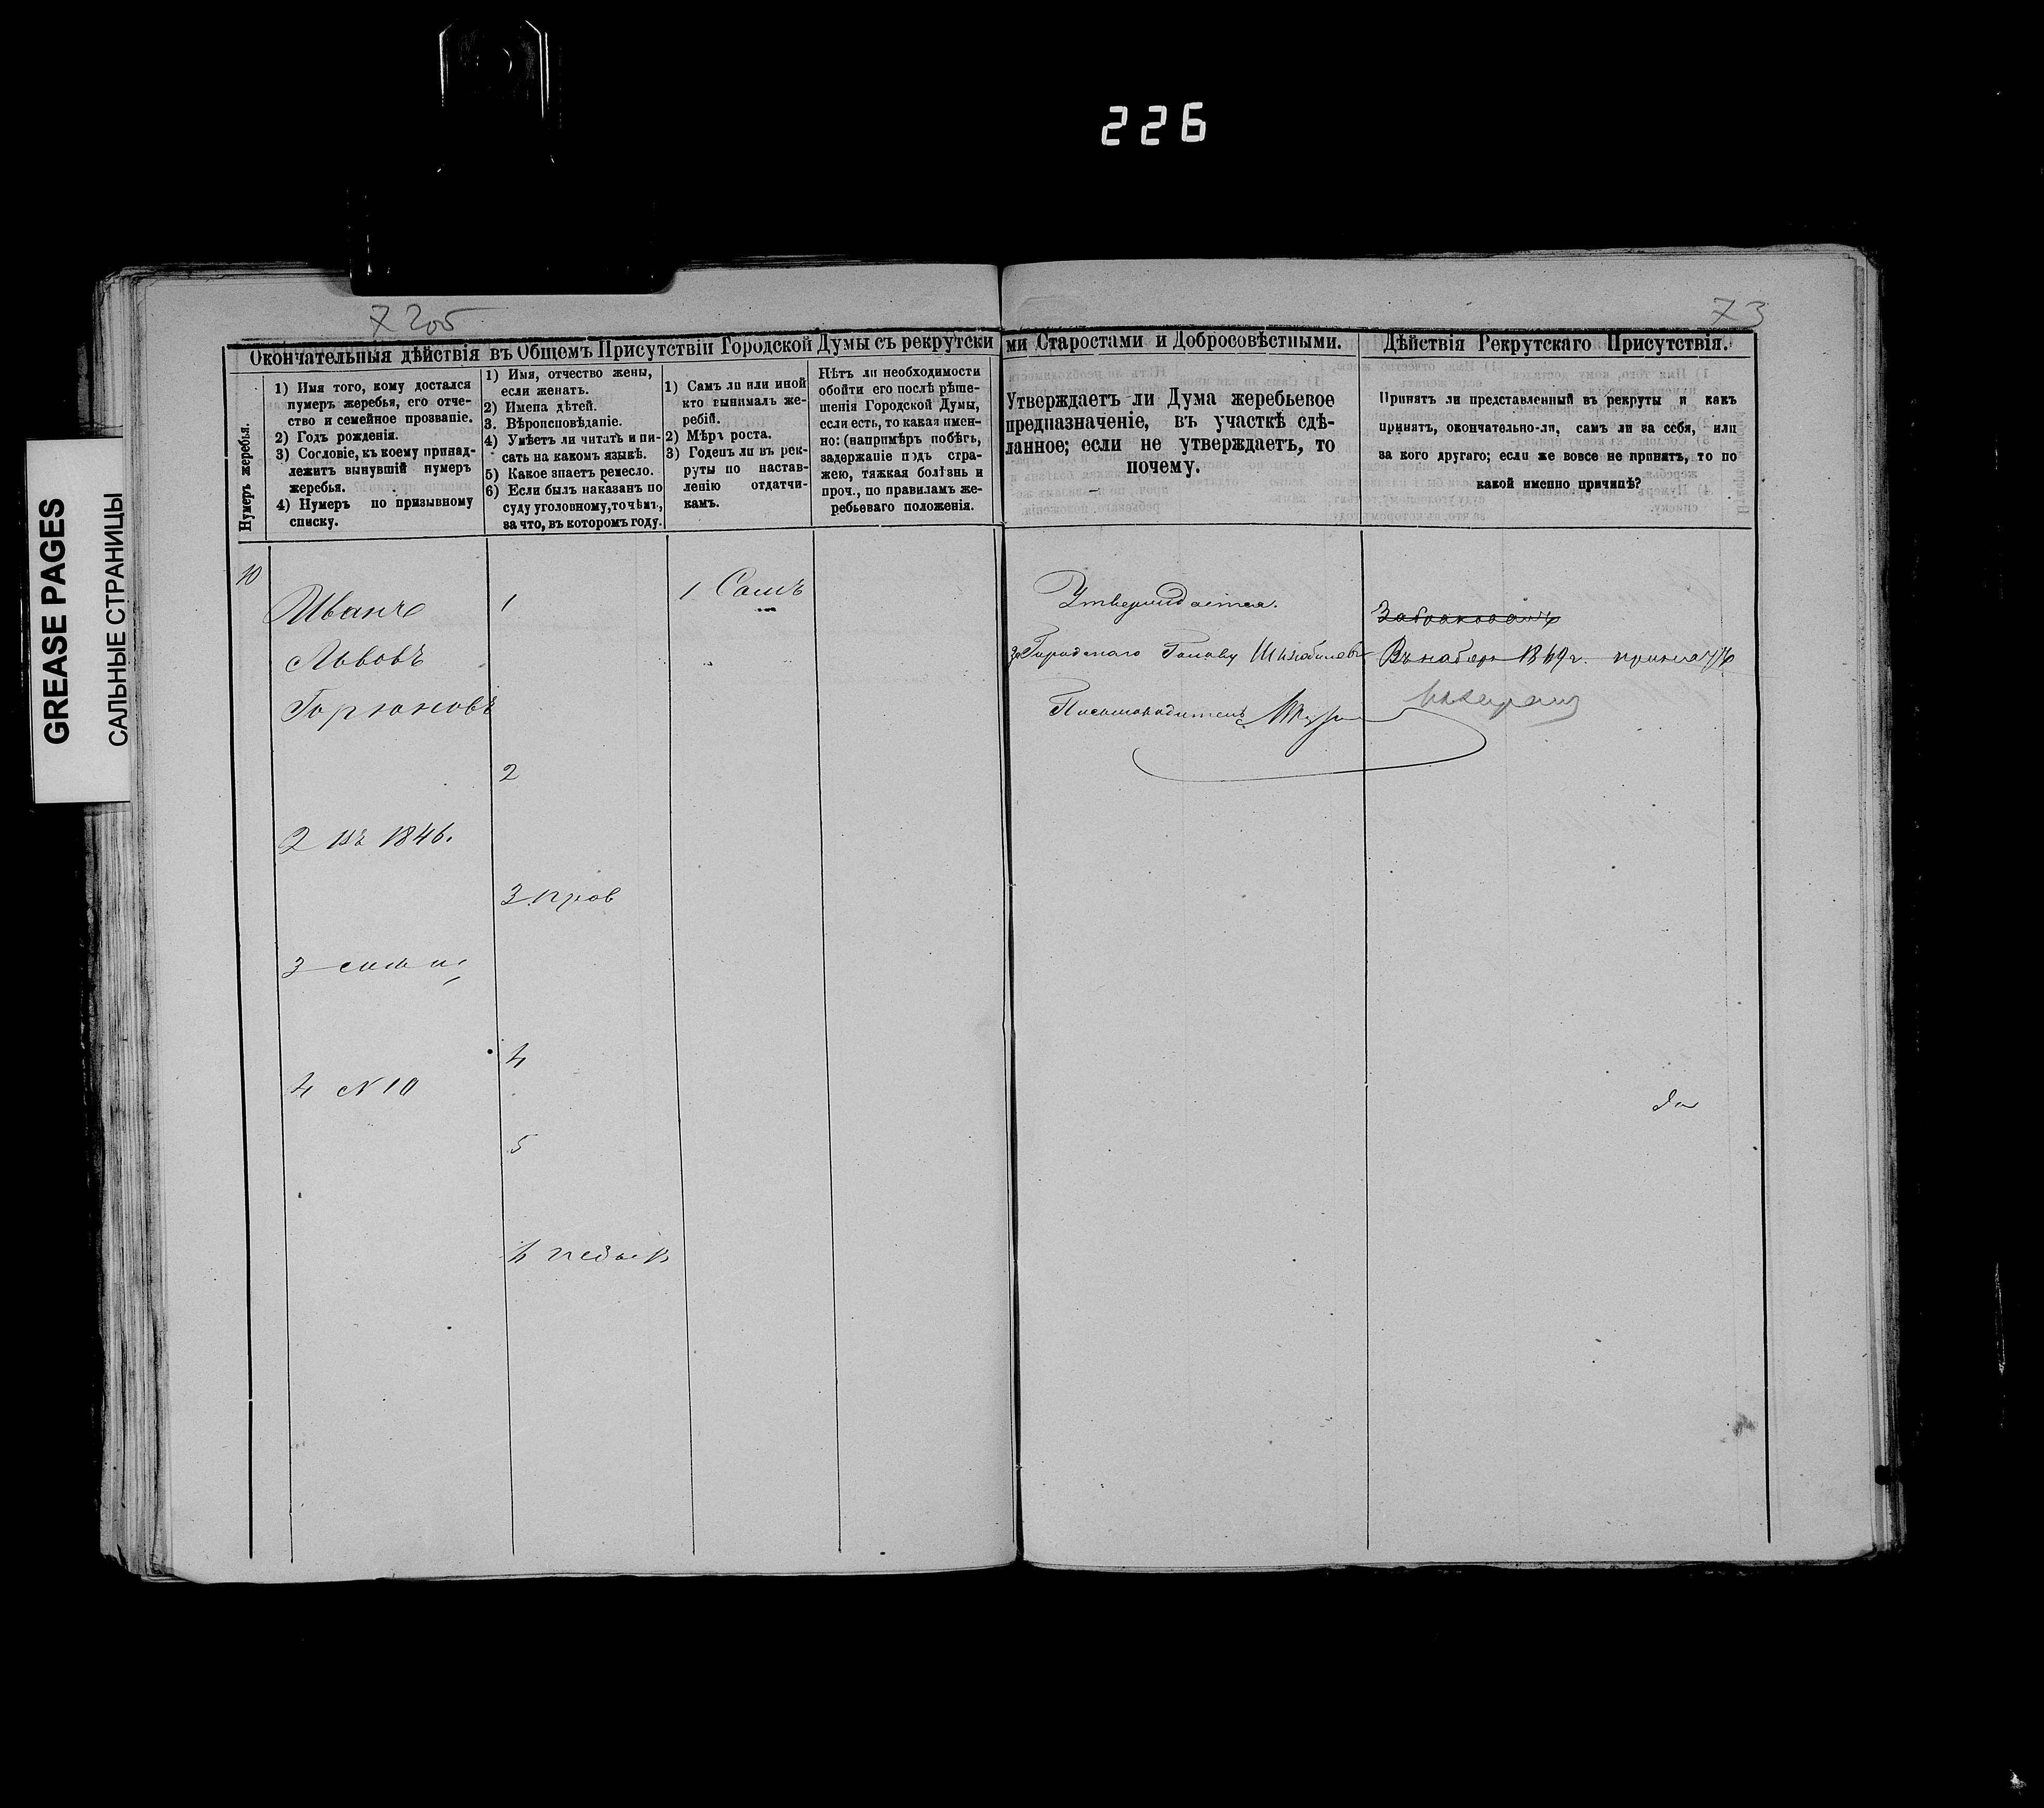 226
GREASE PAGES
САЛЬНЫЕ СТРАНИЦЫ
205
73
Окончательныя дѣйствія въ Общемъ Присутствіи Городской Думы съ рекрутскими Старостами и Добросовѣстными.
Дѣйствія Рекрутскаго Присутствія.
Нумеръ жеребья.
1) Имя того, кому достался
нумеръ жеребья, его отче-
ство и семейное прозваніе.
2) Годъ рожденія.
3) Сословіе, къ коему принад-
лежитъ вынувшій нумеръ
жеребья.
4) Нумеръ по призывному
списку.
1) Имя, отчество жены,
если женатъ.
2) Имена дѣтей.
3. Вѣроисповѣданіе.
4) Умѣетъ ли читать и пи-
сать на какомъ языкѣ.
5) Какое знаетъ ремесло.
6) Если былъ наказанъ по
суду уголовному, то чѣмъ,
за что, въ которомъ году.
1) Самъ ли или иной
кто вынималъ же-
ребій.
2) Мѣръ роста.
3) Годенъ ли въ рек-
руты по настав-
ленію отдатчи-
камъ.
Нѣтъ ли необходимости
обойти его послѣ рѣше-
шенія Городской Думы,
если есть, то какая имен-
но: (напримѣръ побѣгъ,
задержаніе подъ стра-
жею, тяжкая болѣзнь и
проч., по правиламъ же-
ребьеваго положенія.
Утверждаетъ ли Дума жеребьевое
предназначеніе, въ участкѣ сдѣ-
ланное; если не утверждаетъ, то
почему.
Принятъ ли представленный въ рекруты и какъ
принятъ, окончательно-ли, самъ ли за себя, или
за кого другаго; если же вовсе не принятъ, то по
какой именно причинѣ?
10
Иванъ
Львовъ
Горюновъ
2 въ 1846.
3
4 N 10
1
2
3 прав
4
5
1 Самъ
Утверждается.
за Городскаго Голову
Письмоводитель
Забракованъ
Въ наборъ 1869 г. принятъ